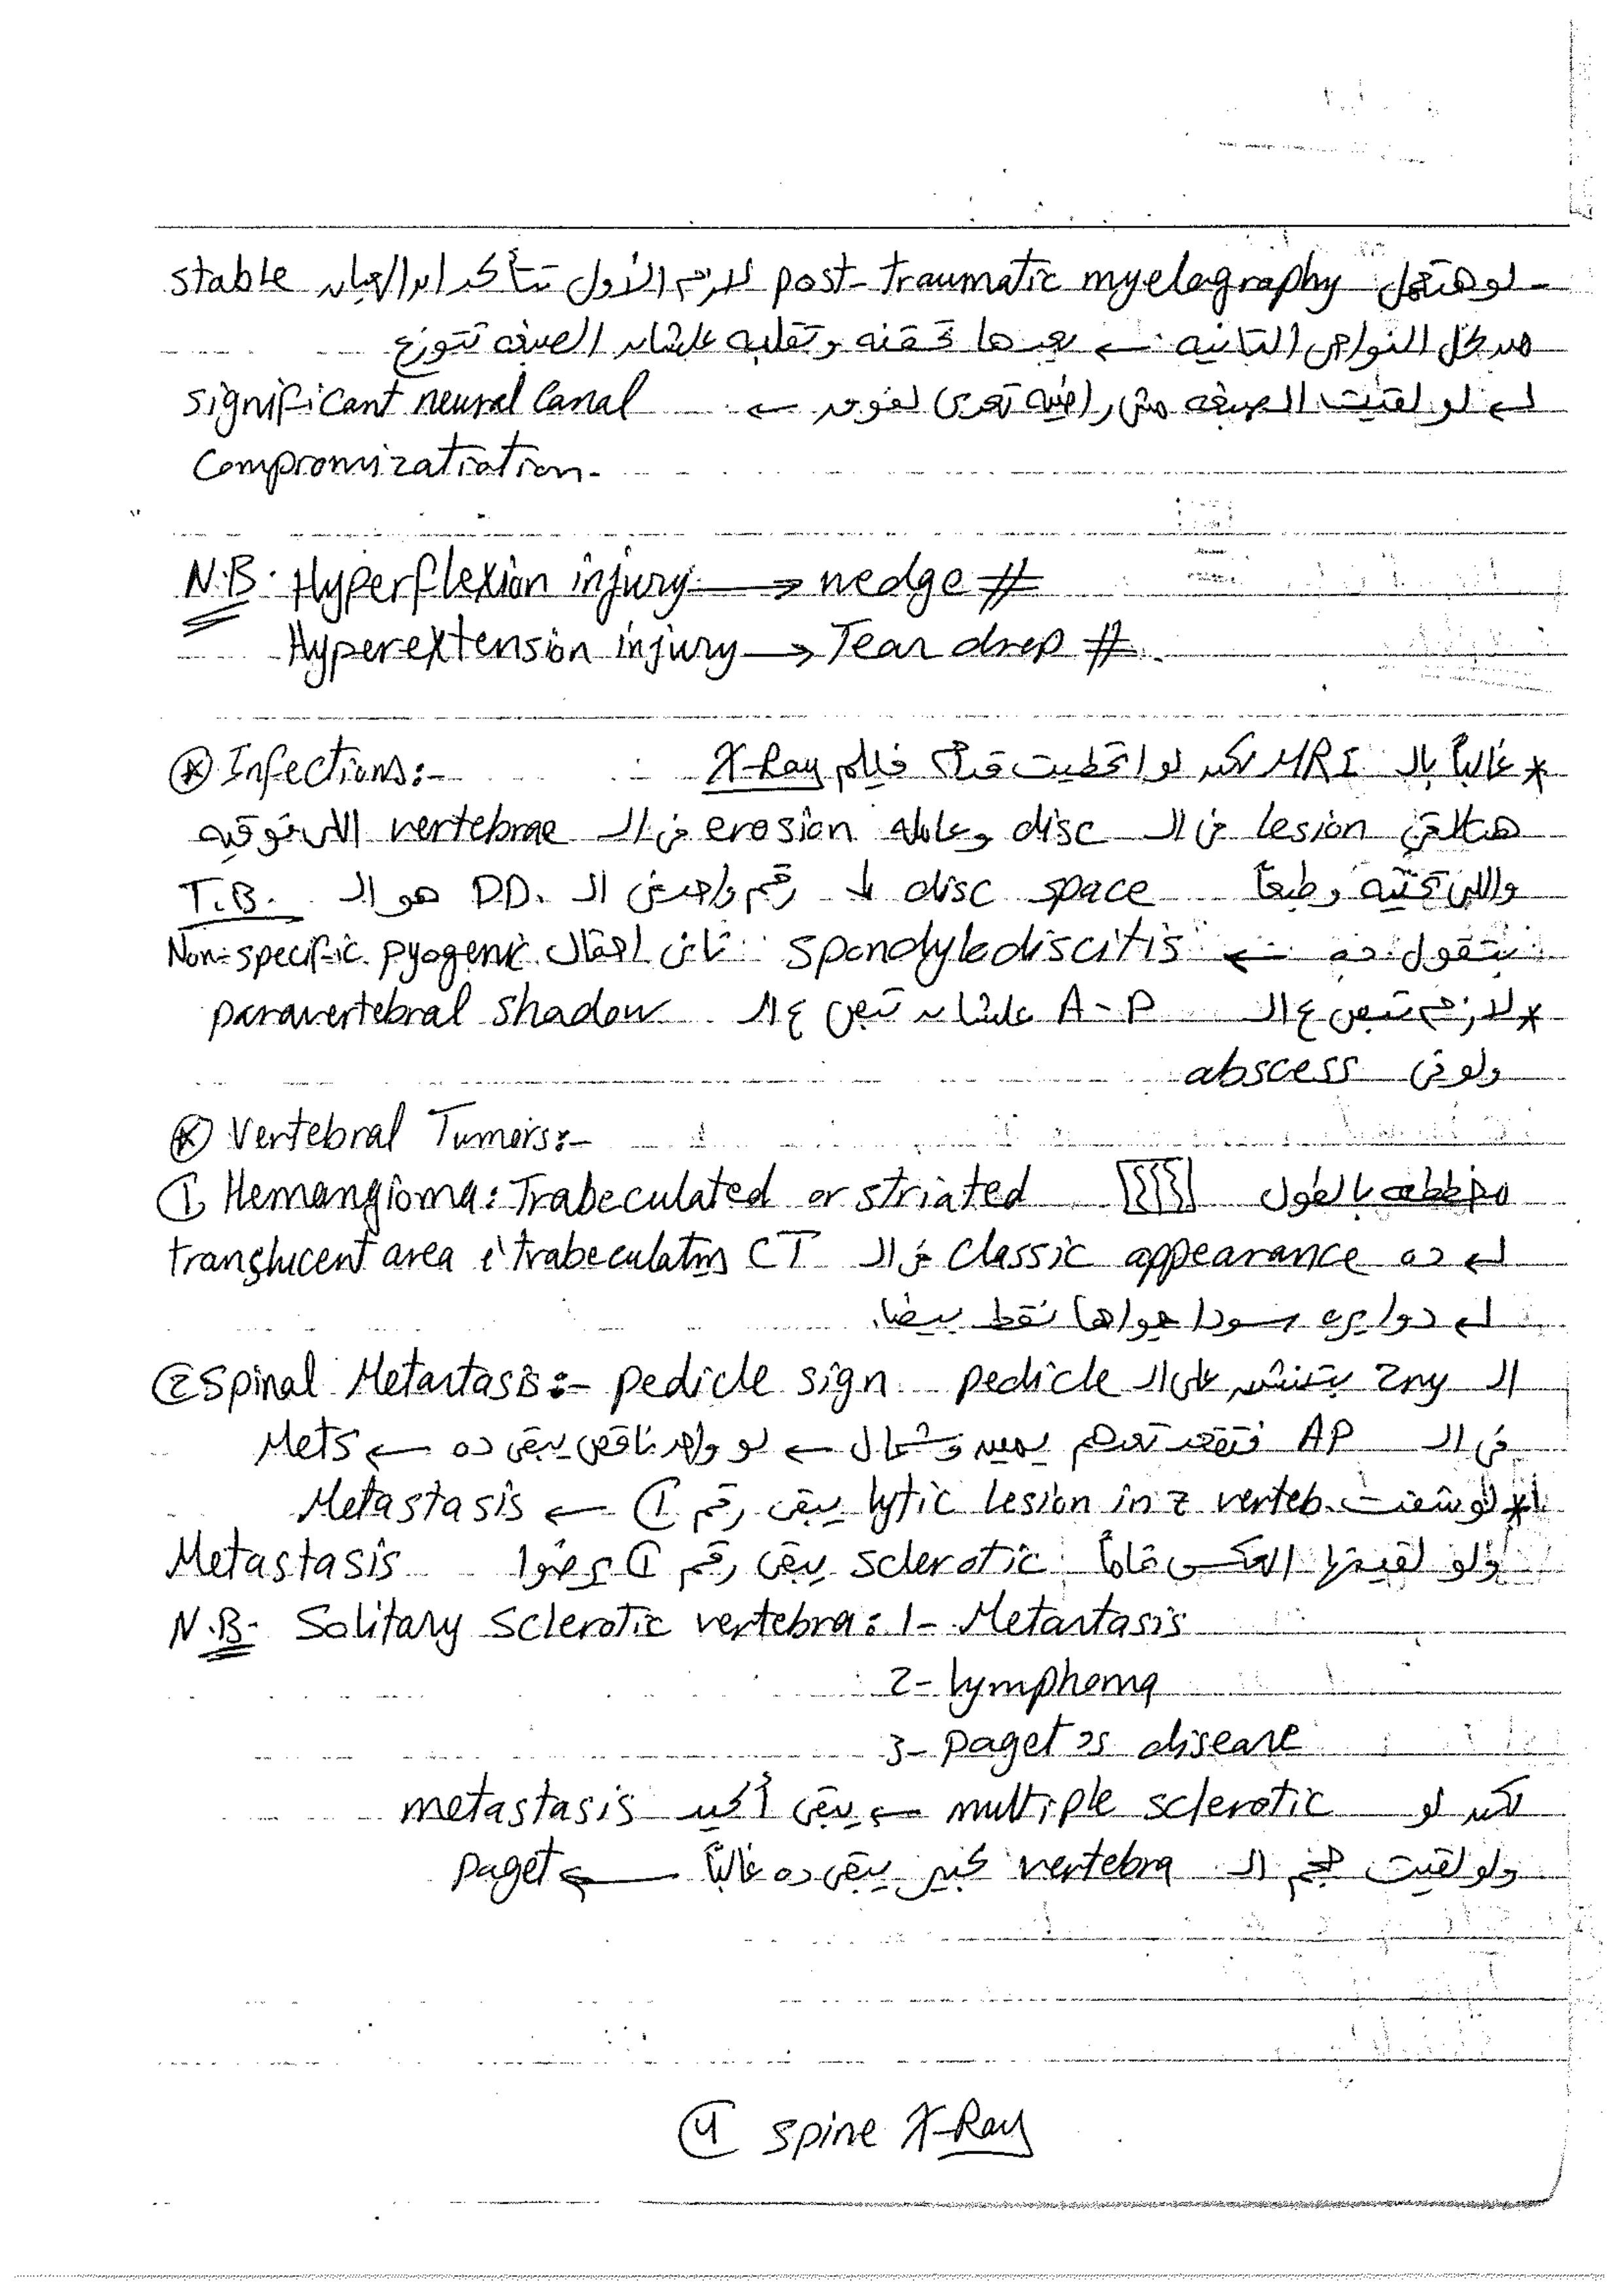 - لو هتعمل post-traumatic myelography لازم الأول تتأكد ان العيان stable
من كل النواحى التانيه ← بعدها تحقنه وتقلبه علشان الصبغه تتوزع
لو لقيت الصبغه مش راضيه تعدى لفوق ← significant neural Canal
Compromizatiation.
N.B. Hyperflexion injury → wedge #
Hyperextension injury → Tear drop #
⊛ Infections:- * غالباً بال MRI لكن لو اتحطيت قدام فيلم X-Ray
هتلاقي lesion فى ال disc وعامله erosion فى ال vertebrae اللى فوقيه
واللى تحتيه وطبعاً disc space ↓ رقم واحد فى ال D.D. هو ال T.B.
بتقول ده ← spondylodiscitis تانى احتمال Non-specific pyogenic
* لازم تبص ع ال A-P علشان تبص ع ال paravertebral shadow
ولو فى abscess
⊛ Vertebral Tumors:-
① Hemangioma: Trabeculated or striated مخططه بالطول
ده classic appearance فى ال CT translucent area trabeculatns
دواير سودا جواها نقط بيضا.
② Spinal Metastasis:- pedicle sign ال 2ry بتنتشر على ال pedicle
فى ال AP فتقعد تعدهم يمين وشمال ← لو واحد ناقص يبقى ده ← Mets
* لو شفت lytic lesion in z verteb. يبقى رقم ① ← Metastasis
ولو لقيتها العكس تماماً sclerotic يبقى رقم ① برضوا Metastasis
N.B. Solitary Sclerotic vertebra: 1- Metastasis
2- lymphoma
3- paget's disease
لكن لو multiple sclerotic ← يبقى أكيد metastasis
ولو لقيت حجم ال vertebra كبير يبقى ده غالباً ← paget
④ spine X-Ray